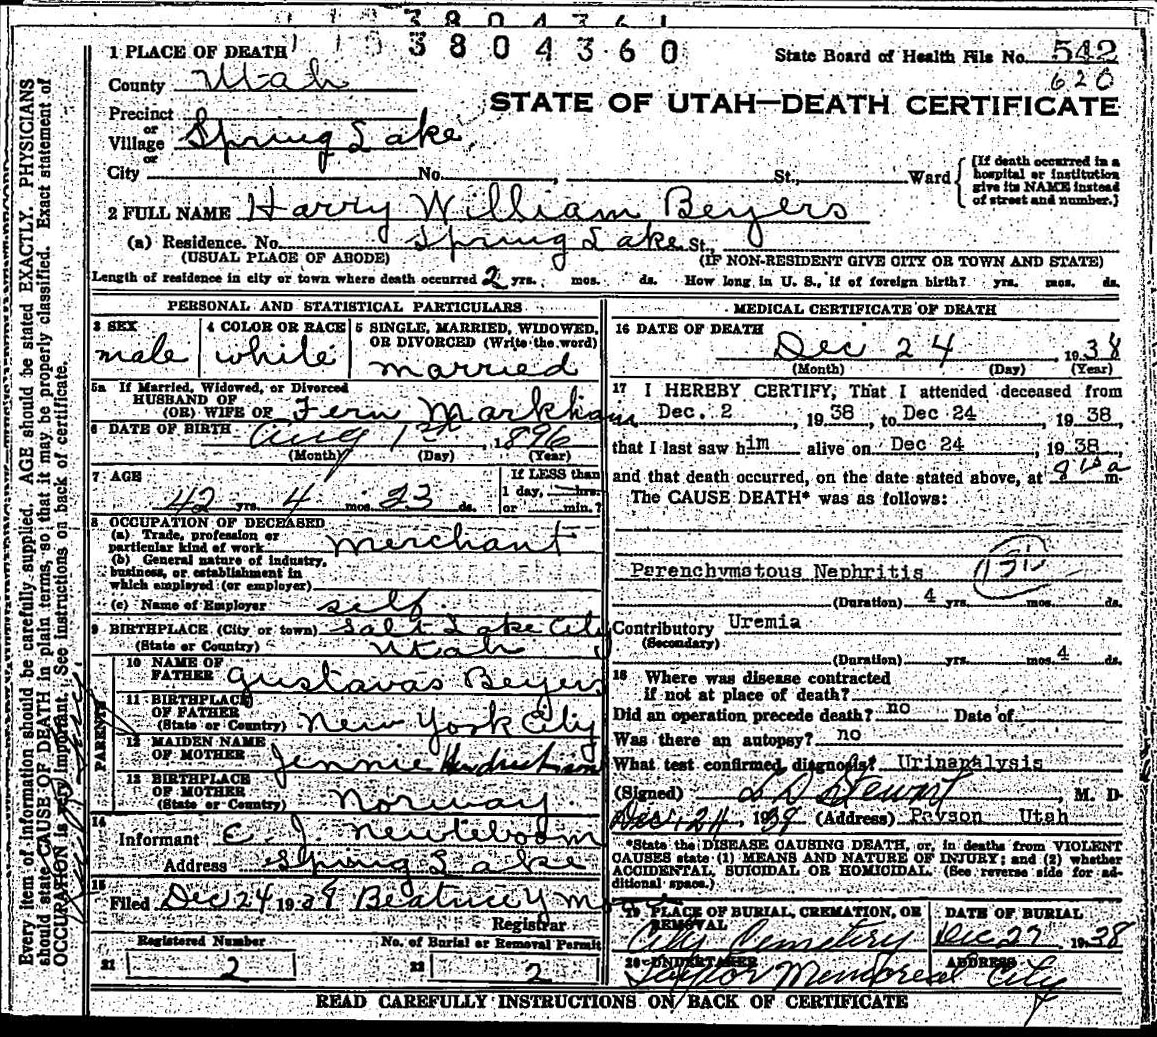 3804360
1 PLACE OF DEATH
State Board of Health File No. 542
County Utah
620
STATE OF UTAH—DEATH CERTIFICATE
Precinct
or
Village Spring Lake
or
City No. , St., Ward
(If death occurred in a hospital or institution give its NAME instead of street and number.)
2 FULL NAME Harry William Beyers
(a) Residence. No. Spring Lake St.,
(USUAL PLACE OF ABODE) (IF NON-RESIDENT GIVE CITY OR TOWN AND STATE)
Length of residence in city or town where death occurred 2 yrs. mos. ds. How long in U. S., if of foreign birth? yrs. mos. ds.
PERSONAL AND STATISTICAL PARTICULARS
3 SEX
male
4 COLOR OR RACE
white
5 SINGLE, MARRIED, WIDOWED,
OR DIVORCED (Write the word)
married
5a If Married, Widowed, or Divorced
HUSBAND OF
(OR) WIFE OF Fern Markham
6 DATE OF BIRTH Aug 1st, 1896
(Month) (Day) (Year)
7 AGE
42 yrs. 4 mos. 23 ds.
If LESS than
1 day, hrs.
or min.?
8 OCCUPATION OF DECEASED
(a) Trade, profession or
particular kind of work merchant
(b) General nature of industry,
business, or establishment in
which employed (or employer)
(c) Name of Employer self
9 BIRTHPLACE (City or town) Salt Lake City
(State or Country) Utah
PARENTS
10 NAME OF
FATHER Gustavas Beyers
11 BIRTHPLACE
OF FATHER
(State or Country) New York City
12 MAIDEN NAME
OF MOTHER Jennie
13 BIRTHPLACE
OF MOTHER
(State or Country) Norway
14
Informant C. J. Newteboom
Address Spring Lake
15
Filed Dec 24 1938 Beatrice Y
Registrar
Registered Number
21 2
No. of Burial or Removal Permit
22 2
MEDICAL CERTIFICATE OF DEATH
16 DATE OF DEATH
Dec 24, 1938
(Month) (Day) (Year)
17 I HEREBY CERTIFY, That I attended deceased from
Dec. 2, 1938, to Dec 24, 1938,
that I last saw him alive on Dec 24, 1938,
and that death occurred, on the date stated above, at m.
The CAUSE DEATH* was as follows:
Parenchymatous Nephritis
(Duration) 4 yrs. mos. ds.
Contributory Uremia
(Secondary)
(Duration) yrs. mos. 4 ds.
18 Where was disease contracted
if not at place of death?
Did an operation precede death? no Date of
Was there an autopsy? no
What test confirmed diagnosis? Urinanalysis
(Signed) L D Stewart, M. D.
Dec. 24, 1938 (Address) Payson Utah
*State the DISEASE CAUSING DEATH, or, in deaths from VIOLENT
CAUSES state (1) MEANS AND NATURE OF INJURY; and (2) whether
ACCIDENTAL, SUICIDAL OR HOMICIDAL. (See reverse side for ad-
ditional space.)
19 PLACE OF BURIAL, CREMATION, OR
REMOVAL
City Cemetery
DATE OF BURIAL
Dec 27 1938
20 UNDERTAKER
Taylor Memoreal
ADDRESS
City
READ CAREFULLY INSTRUCTIONS ON BACK OF CERTIFICATE
Every item of information should be carefully supplied. AGE should be stated EXACTLY. PHYSICIANS
should state CAUSE OF DEATH in plain terms, so that it may be properly classified. Exact statement of
OCCUPATION is very important. See instructions on back of certificate.